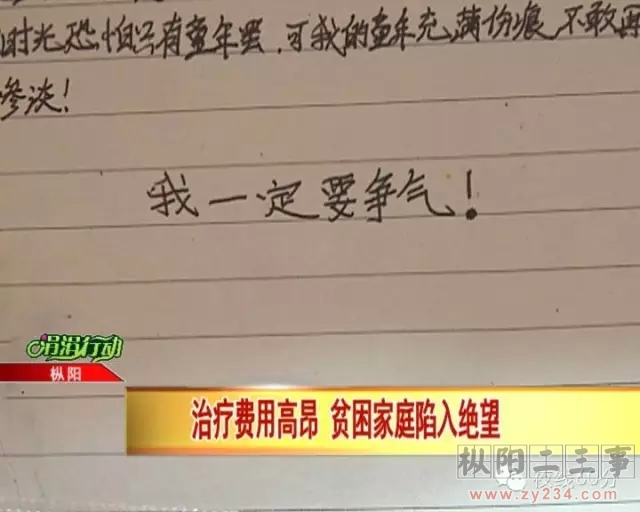 时光恐怕只有童年罢，可我的童年充满伤痕，不敢再
惨淡！
我一定要争气！
涓涓行动
枞阳
治疗费用高昂 贫困家庭陷入绝望
枞阳二三事
www.zy234.com